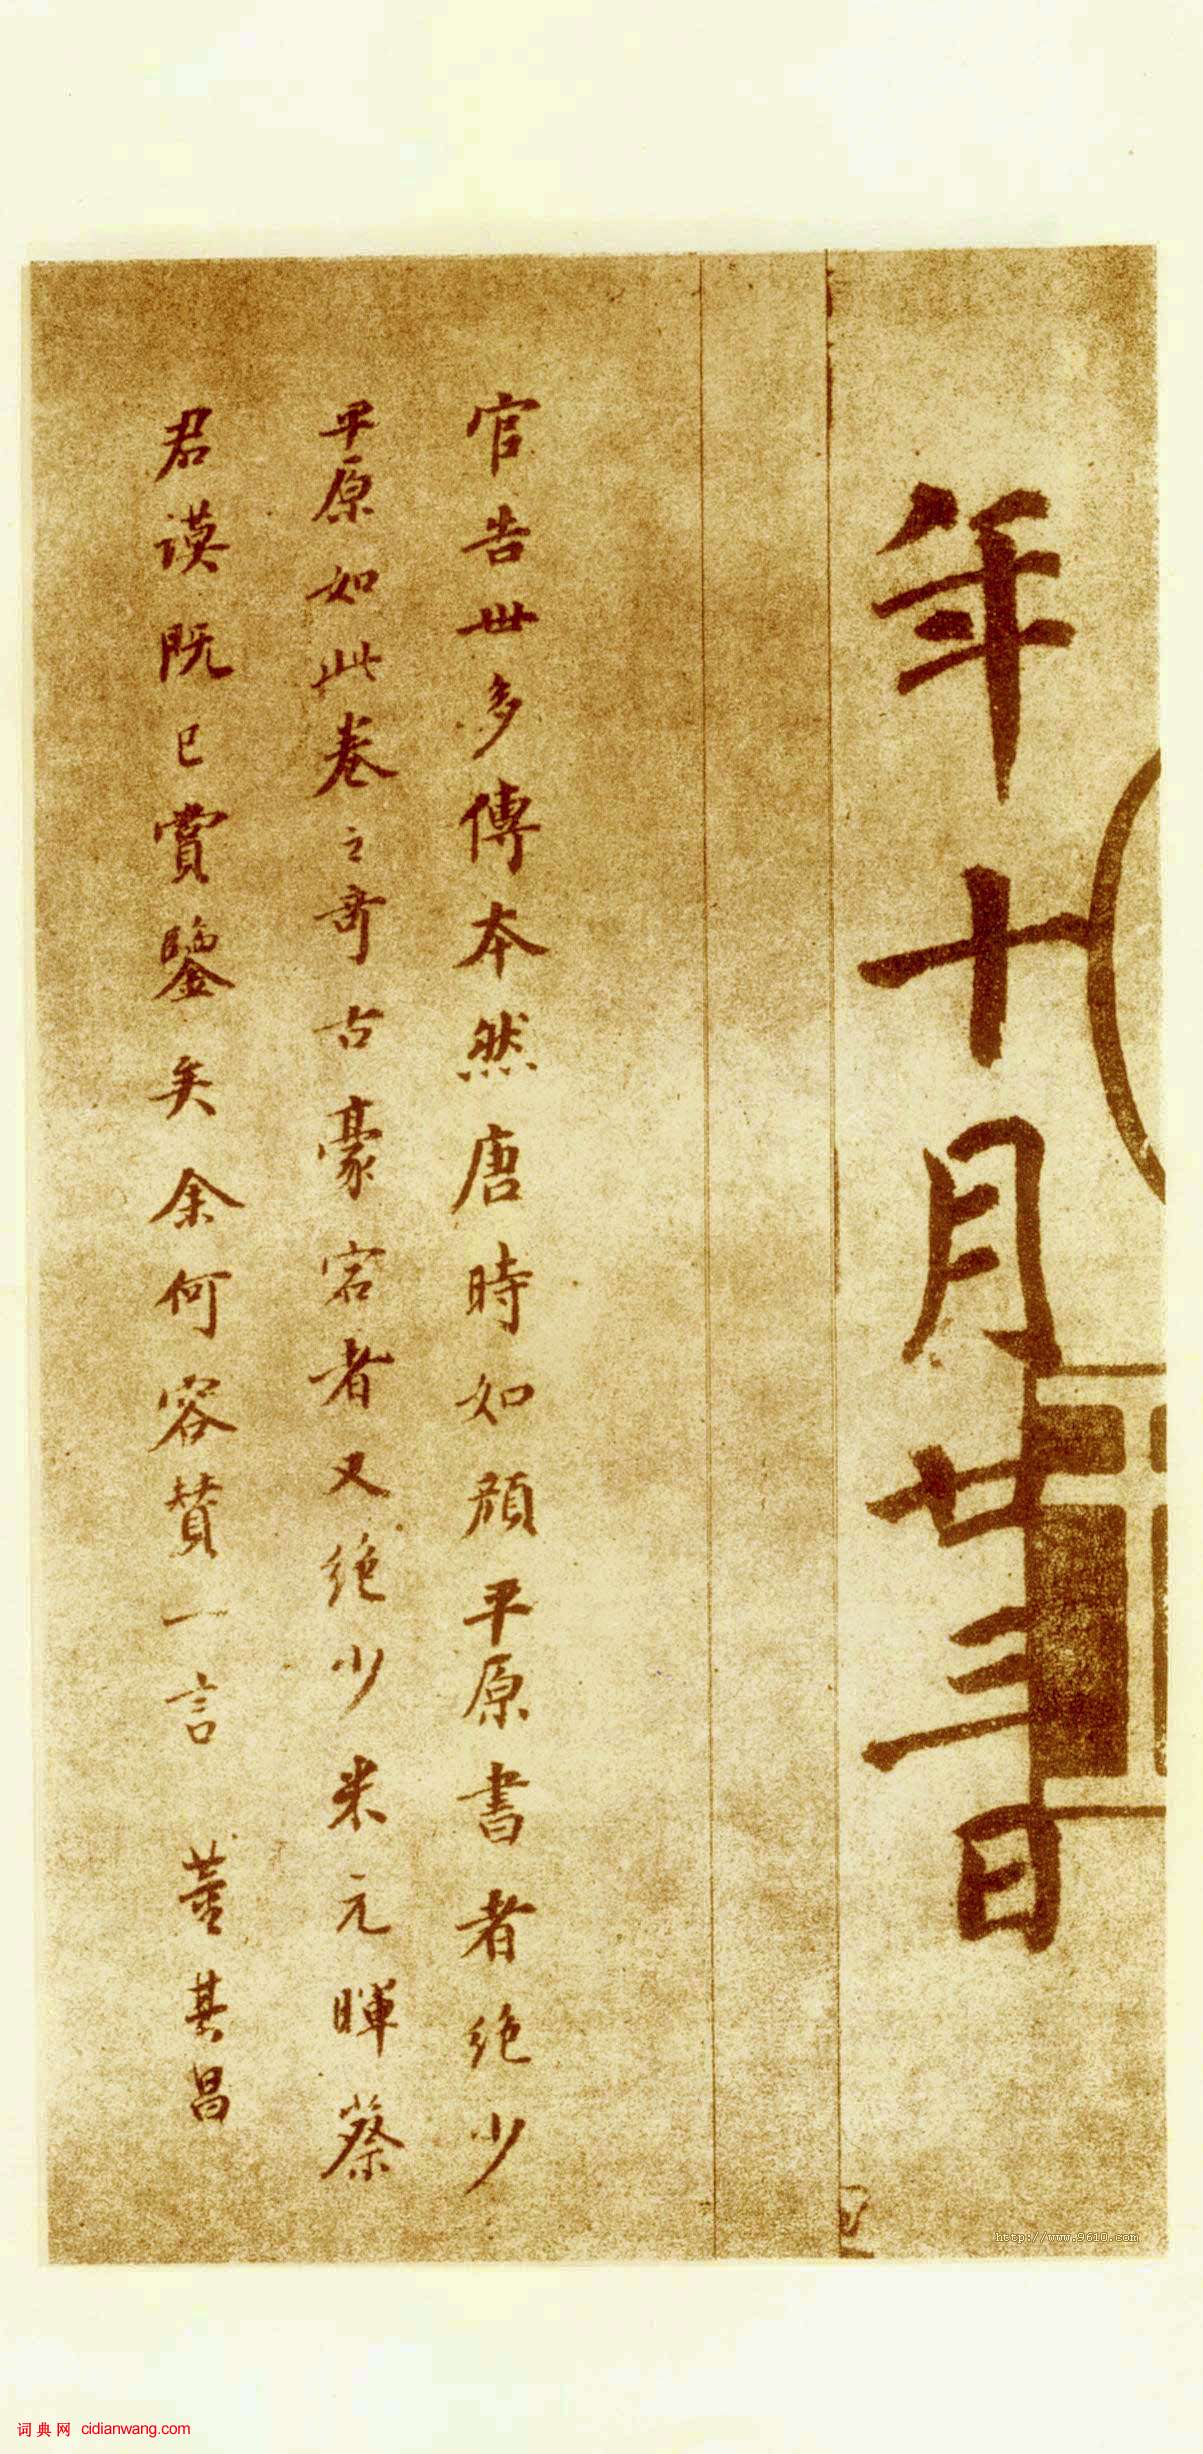 年十月廿三日
官告世多傳本然唐時如顏平原書者絕少
平原如此卷之奇古豪宕者又絕少米元暉蔡
君謨既已賞鑒矣余何容贊一言 董其昌
http://www.9610.com
词典网 cidianwang.com